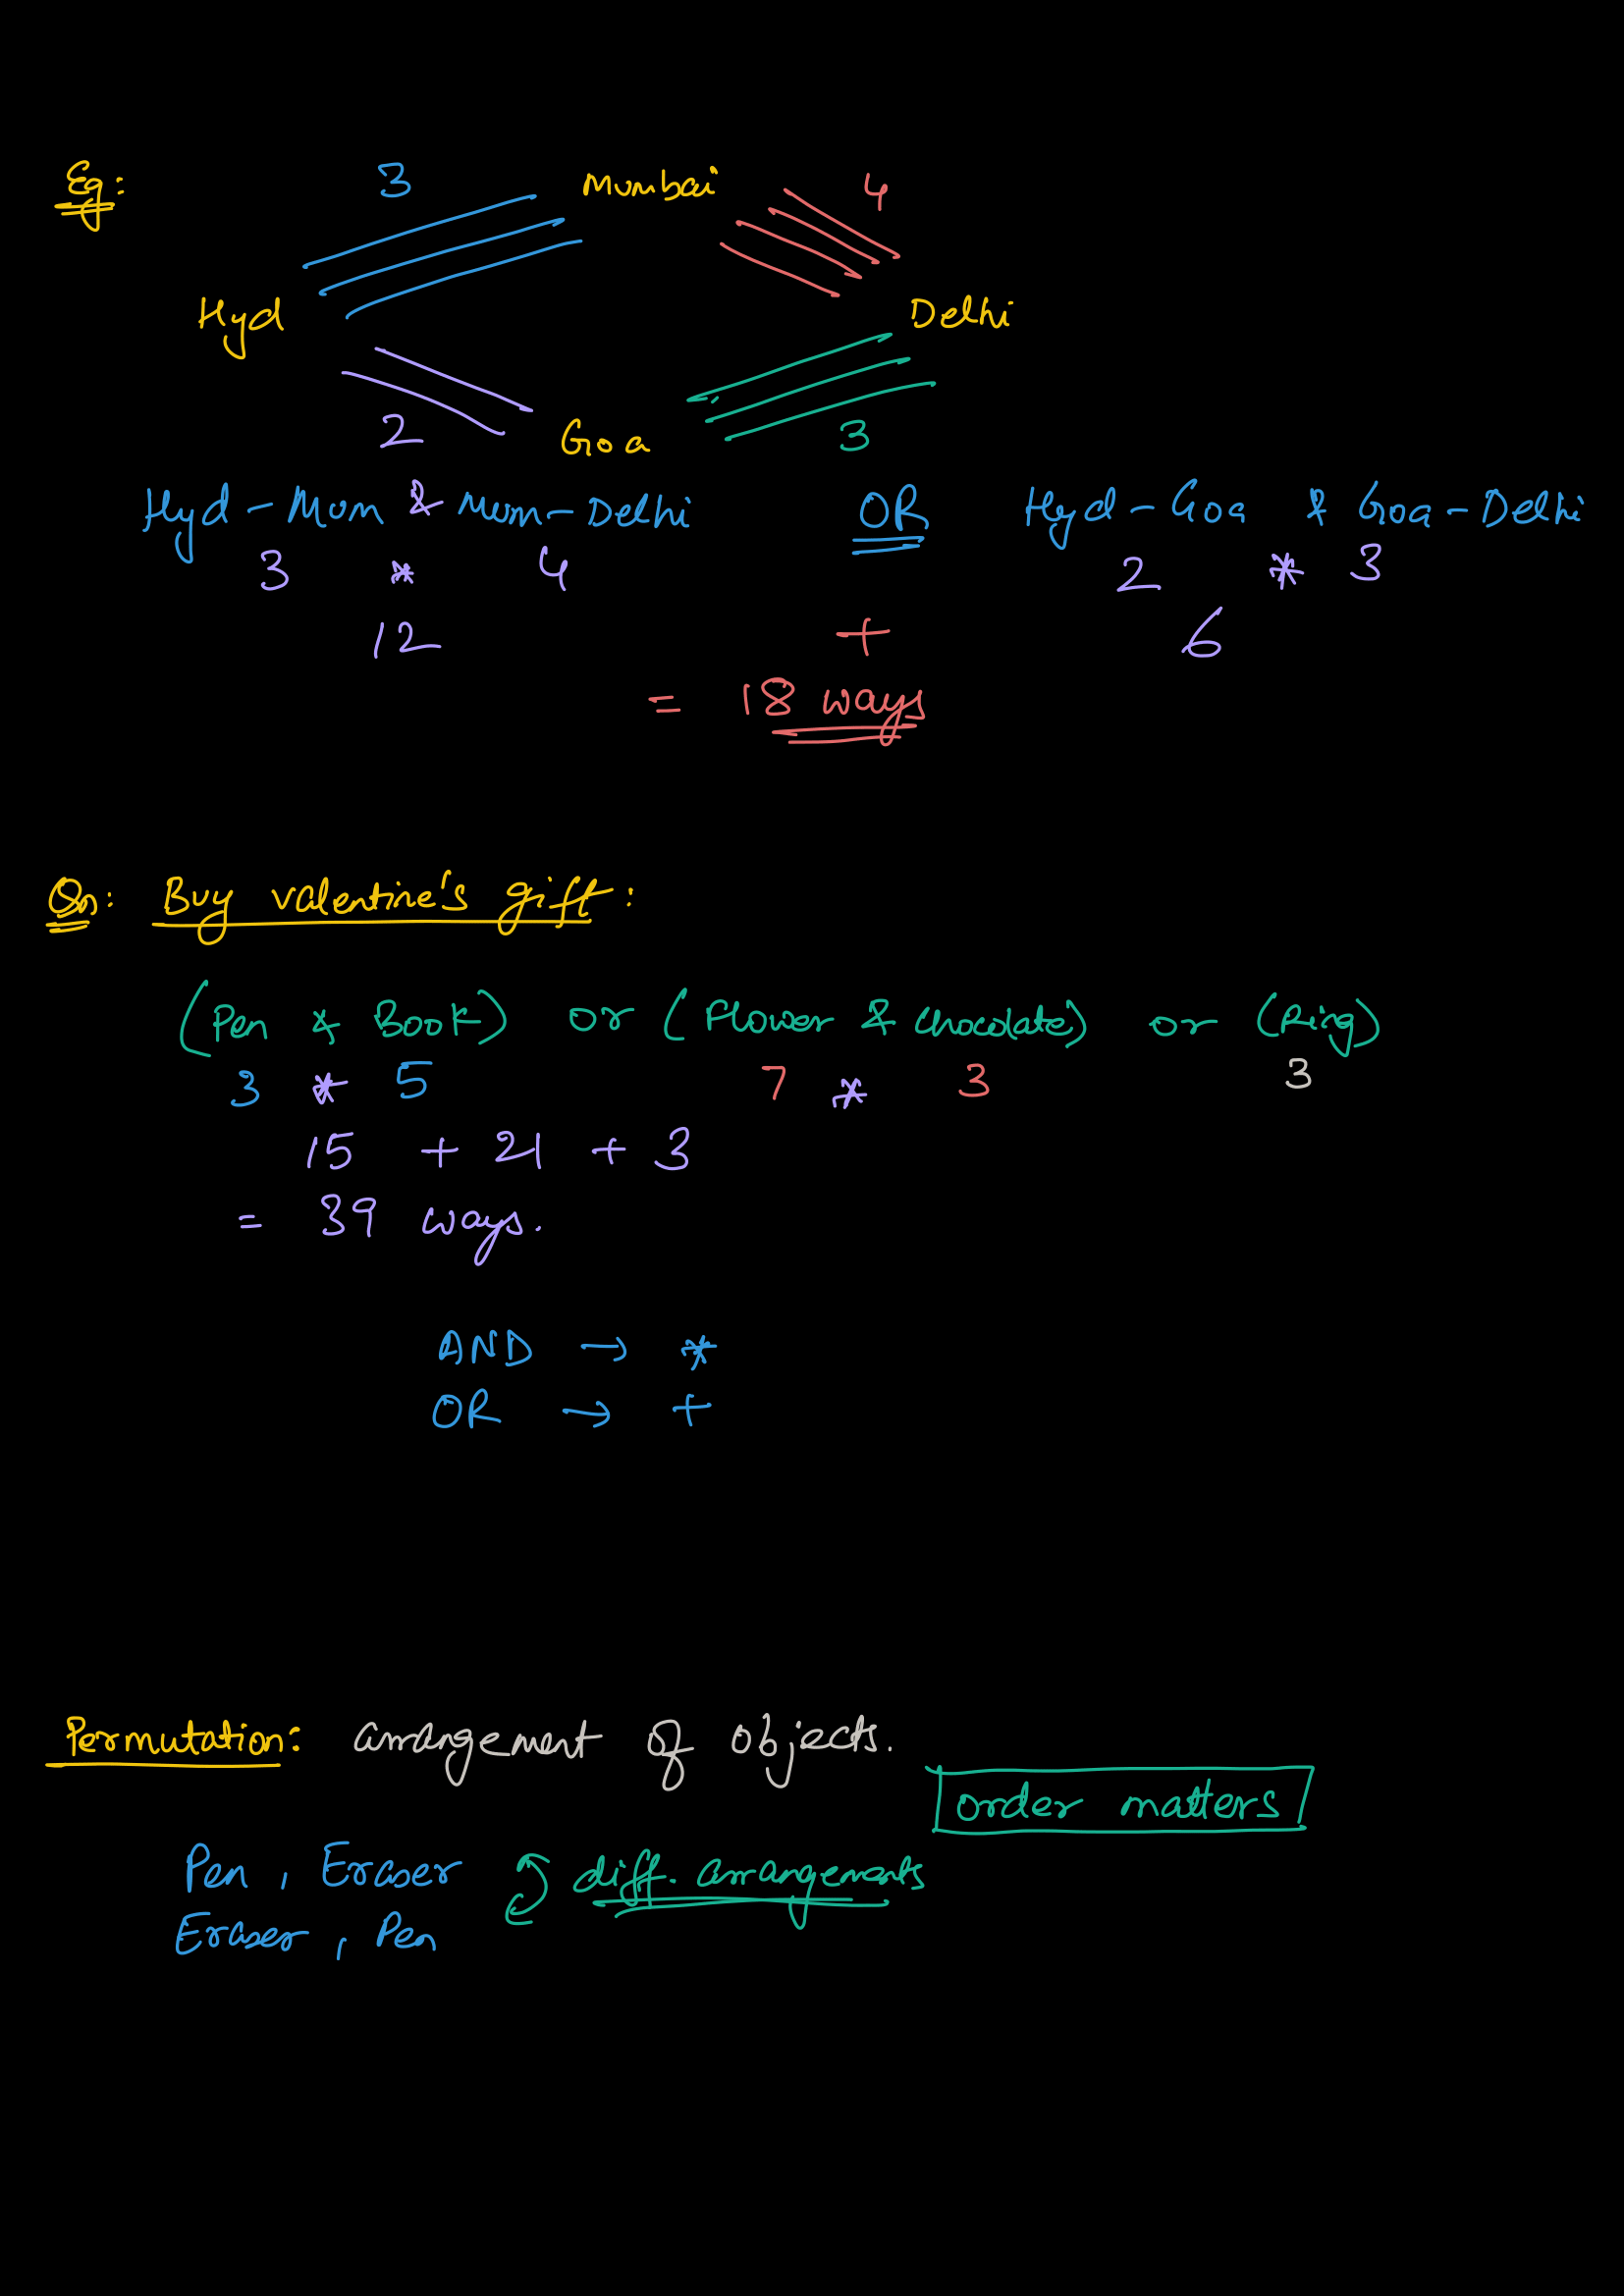 Eg:
3 Mumbai 4
Hyd Delhi
2 Goa 3
Hyd-Mum & Mum-Delhi OR Hyd-Goa & Goa-Delhi
3 * 4 2 * 3
12 + 6
= 18 ways
Qn: Buy valentine's gift:
(Pen & Book) or (Flower & chocolate) or (Ring)
3 * 5 7 * 3 3
15 + 21 + 3
= 39 ways.
AND → *
OR → +
Permutation: arrangement of objects.
order matters
Pen, Eraser diff. arrangements
Eraser, Pen